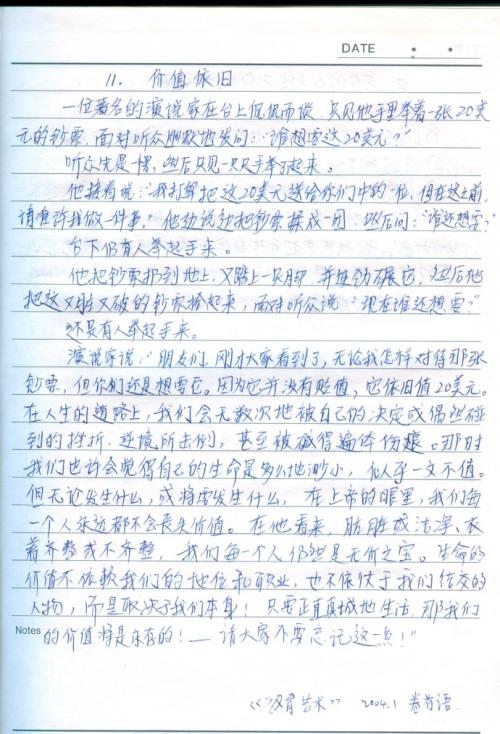 DATE
11. 价值依旧
一位著名的演说家在台上侃侃而谈,只见他手里举着一张20美
元的钞票,面对听众幽默地发问:“谁想要这20美元?”
听众先是一愣,然后只见一只只手举了起来。
他接着说:“我打算把这20美元送给你们中的一位,但在这之前,
请准许我做一件事。”他边说边把钞票揉成一团,然后问:“谁还想要?”
台下仍有人举起手来。
他把钞票扔到地上,又踏上一只脚,并使劲碾它,然后他
把这又脏又破的钞票拾起来,面对听众说:“现在谁还想要?”
还是有人举起手来。
演说家说:“朋友们,刚才大家看到了,无论我怎样对待那张
钞票,但你们还是想要它。因为它并没有贬值,它依旧值20美元。
在人生的道路上,我们会无数次地被自己的决定或偶然碰
到的挫折、逆境所击倒,甚至被碰得遍体伤痕。那时
我们也许会觉得自己的生命是多么地渺小,似乎一文不值。
但无论发生什么,或将要发生什么,在上帝的眼里,我们每
一个人永远都不会丧失价值。在他看来,肮脏或洁净、衣
着齐整或不齐整,我们每一个人仍然是无价之宝。生命的
价值不依赖我们的地位和职业,也不依仗于我们结交的
人物,而是取决于我们本身!只要正直真诚地生活,那我们
Notes
的价值将是永存的!—请大家不要忘记这一点!”
艺术 2004.1 卷首语